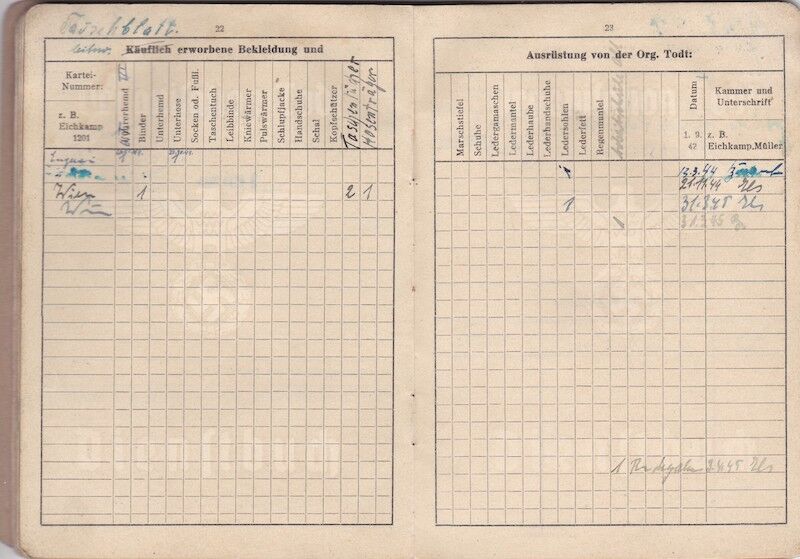 Tauschblatt.
22
Käuflich erworbene Bekleidung und
Kartei-
Nummer:
z. B.
Eichkamp
1201
Oberhemd
Binder
Unterhemd
Unterhose
Socken od. Fußl.
Taschentuch
Leibbinde
Kniewärmer
Pulswärmer
Schlupfjacke
Handschuhe
Schal
Kopfschützer
Taschentücher
Hosenträger
Wien
1
2
1
Wien
23
Ausrüstung von der Org. Todt:
Marschstiefel
Schuhe
Ledergamaschen
Ledermantel
Lederhaube
Lederhandschuhe
Ledersohlen
Lederfett
Regenmantel
Datum
Kammer und
Unterschrift
1. 9.
42
z. B.
Eichkamp, Müller
12.3.44
21.11.44
1
31.3.45
1
31.3.45
1
2.4.45